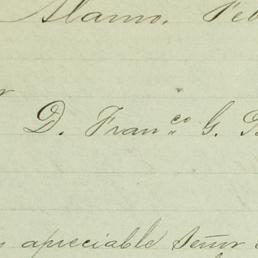 Alamo. Feb
D. Fran.co G.
apreciable Señor